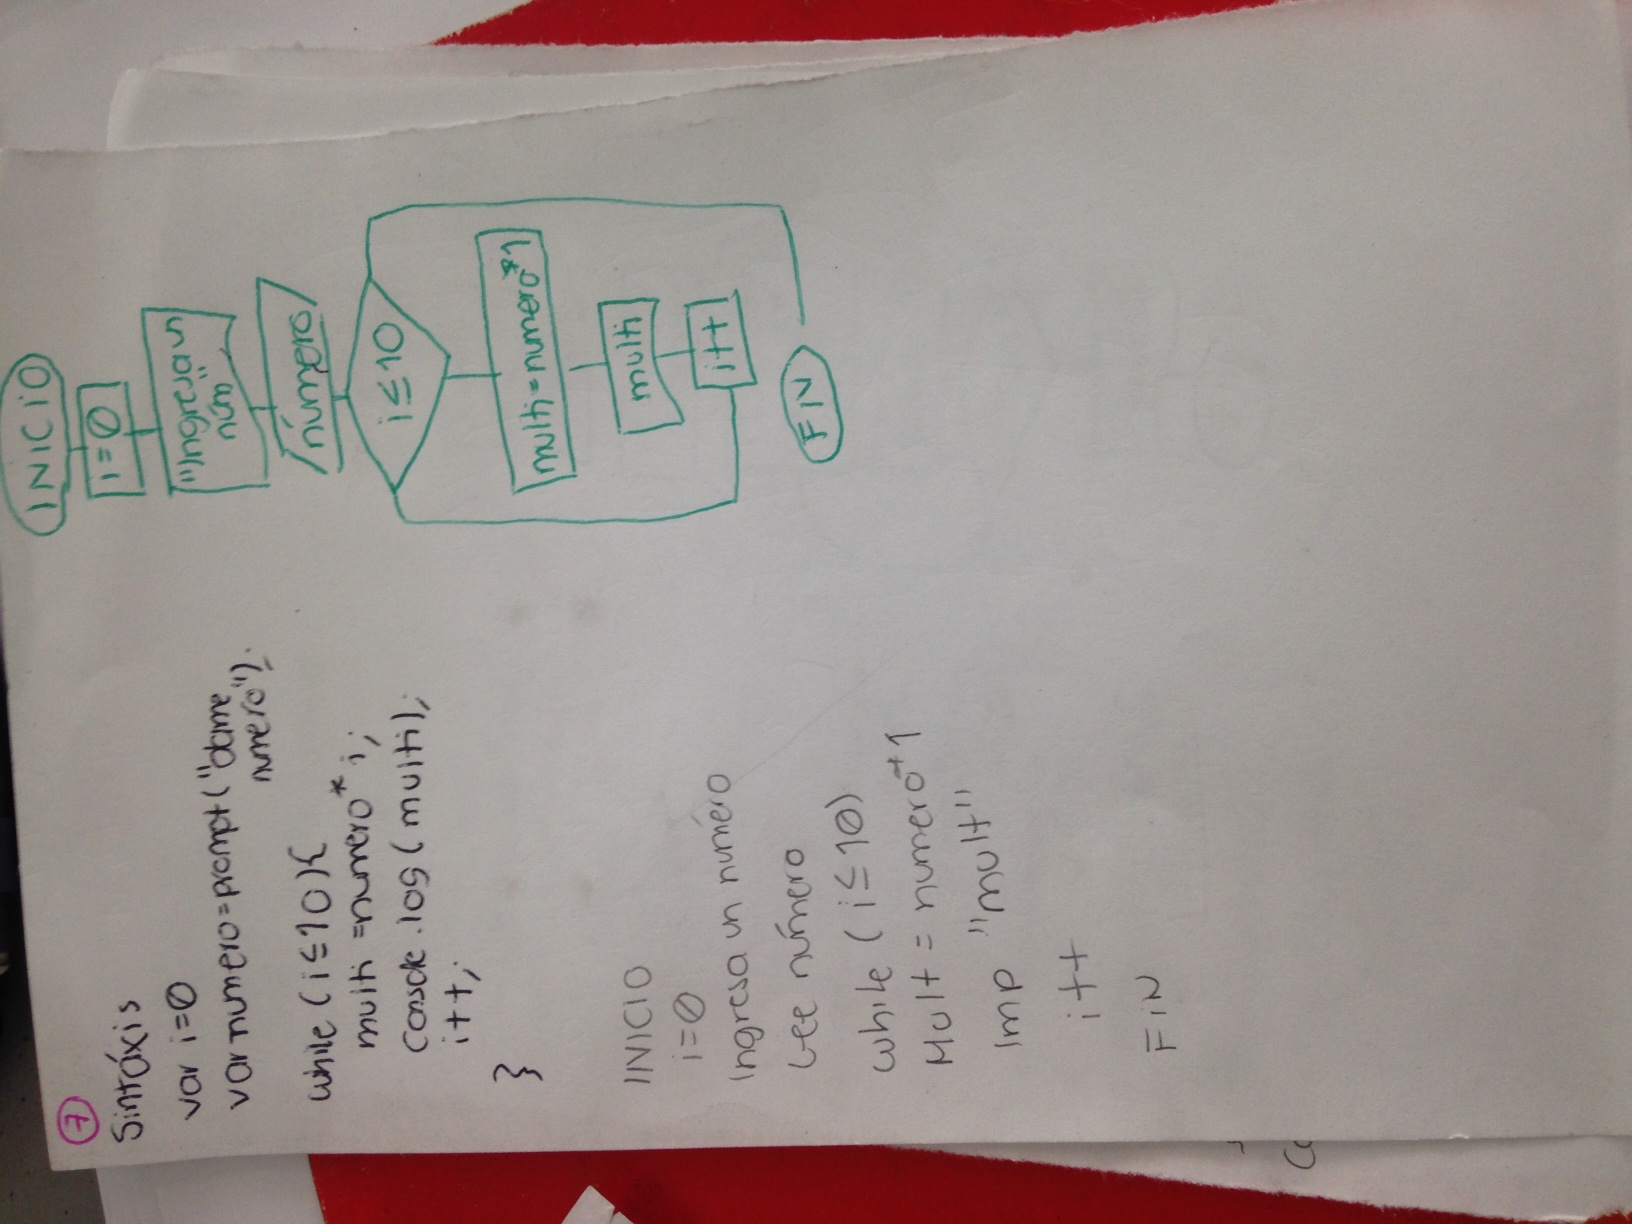 7
Sintáxis
var i=0
var numero=prompt("dame
numero");
while (i≤10){
multi =numero*i;
console.log(multi);
i++;
}
INICIO
i=0
Ingresa un número
Lee número
while (i≤10)
Mult = numero*1
Imp "mult"
i++
FIN
INICIO
i=0
"Ingresa un
núm"
número
i≤10
multi=numero*1
multi
i++
FIN